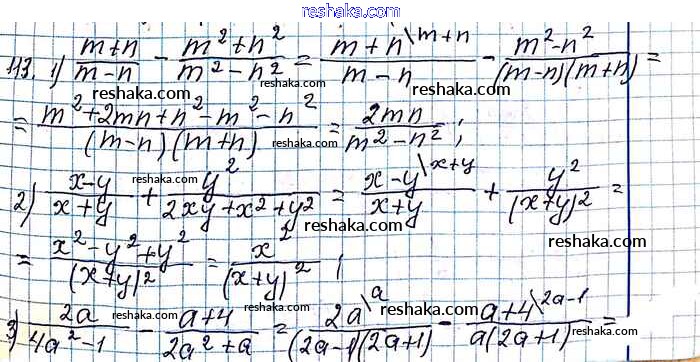 reshaka.com
113. 1) \frac{m+n}{m-n} - \frac{m^2+n^2}{m^2-n^2} = \frac{m+n^{\backslash m+n}}{m-n} - \frac{m^2-n^2}{(m-n)(m+n)} =
= \frac{m^2+2mn+n^2-m^2-n^2}{(m-n)(m+n)} = \frac{2mn}{m^2-n^2};
2) \frac{x-y}{x+y} + \frac{y^2}{2xy+x^2+y^2} = \frac{x-y^{\backslash x+y}}{x+y} + \frac{y^2}{(x+y)^2} =
= \frac{x^2-y^2+y^2}{(x+y)^2} = \frac{x^2}{(x+y)^2};
3) \frac{2a}{4a^2-1} - \frac{a+4}{2a^2+a} = \frac{2a^{\backslash a}}{(2a-1)(2a+1)} - \frac{a+4^{\backslash 2a-1}}{a(2a+1)} =